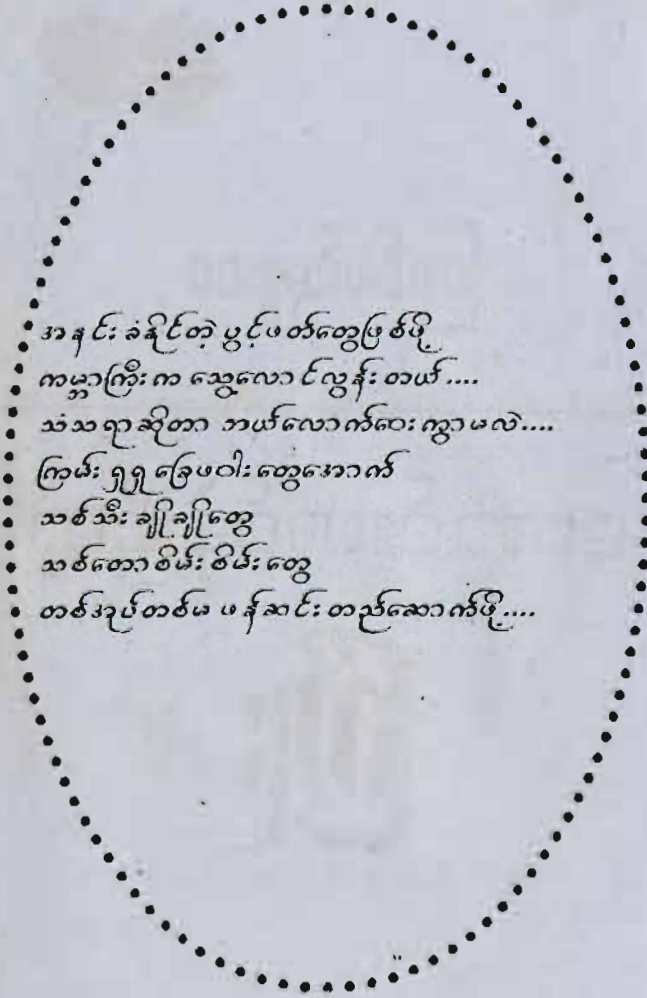 အနင်းခံနိုင်တဲ့ ပွင့်ဖတ်တွေဖြစ်ဖို့
ကမ္ဘာကြီးက သွေ့လောင်လွန်းတယ်....
သံသရာဆိုတာ ဘယ်လောက်ဝေးကွာမလဲ....
ကြမ်းရှရှ ခြေဖဝါးတွေအောက်
သစ်သီးချိုချိုတွေ
သစ်တောစိမ်းစိမ်းတွေ
တစ်အုပ်တစ်မ ဖန်ဆင်းတည်ဆောက်ဖို့....